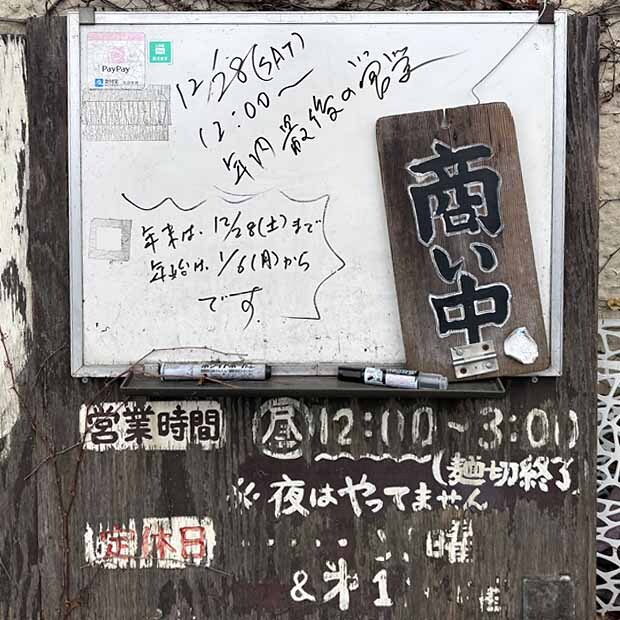 PayPay
12/28(SAT)
12:00〜
年内最後の営業
年末は、12/28(土)まで
年始は、1/6(月)から
です。
商い中
営業時間 昼 12:00~3:00
(麺切終了
※夜はやってません
定休日 曜
&第1